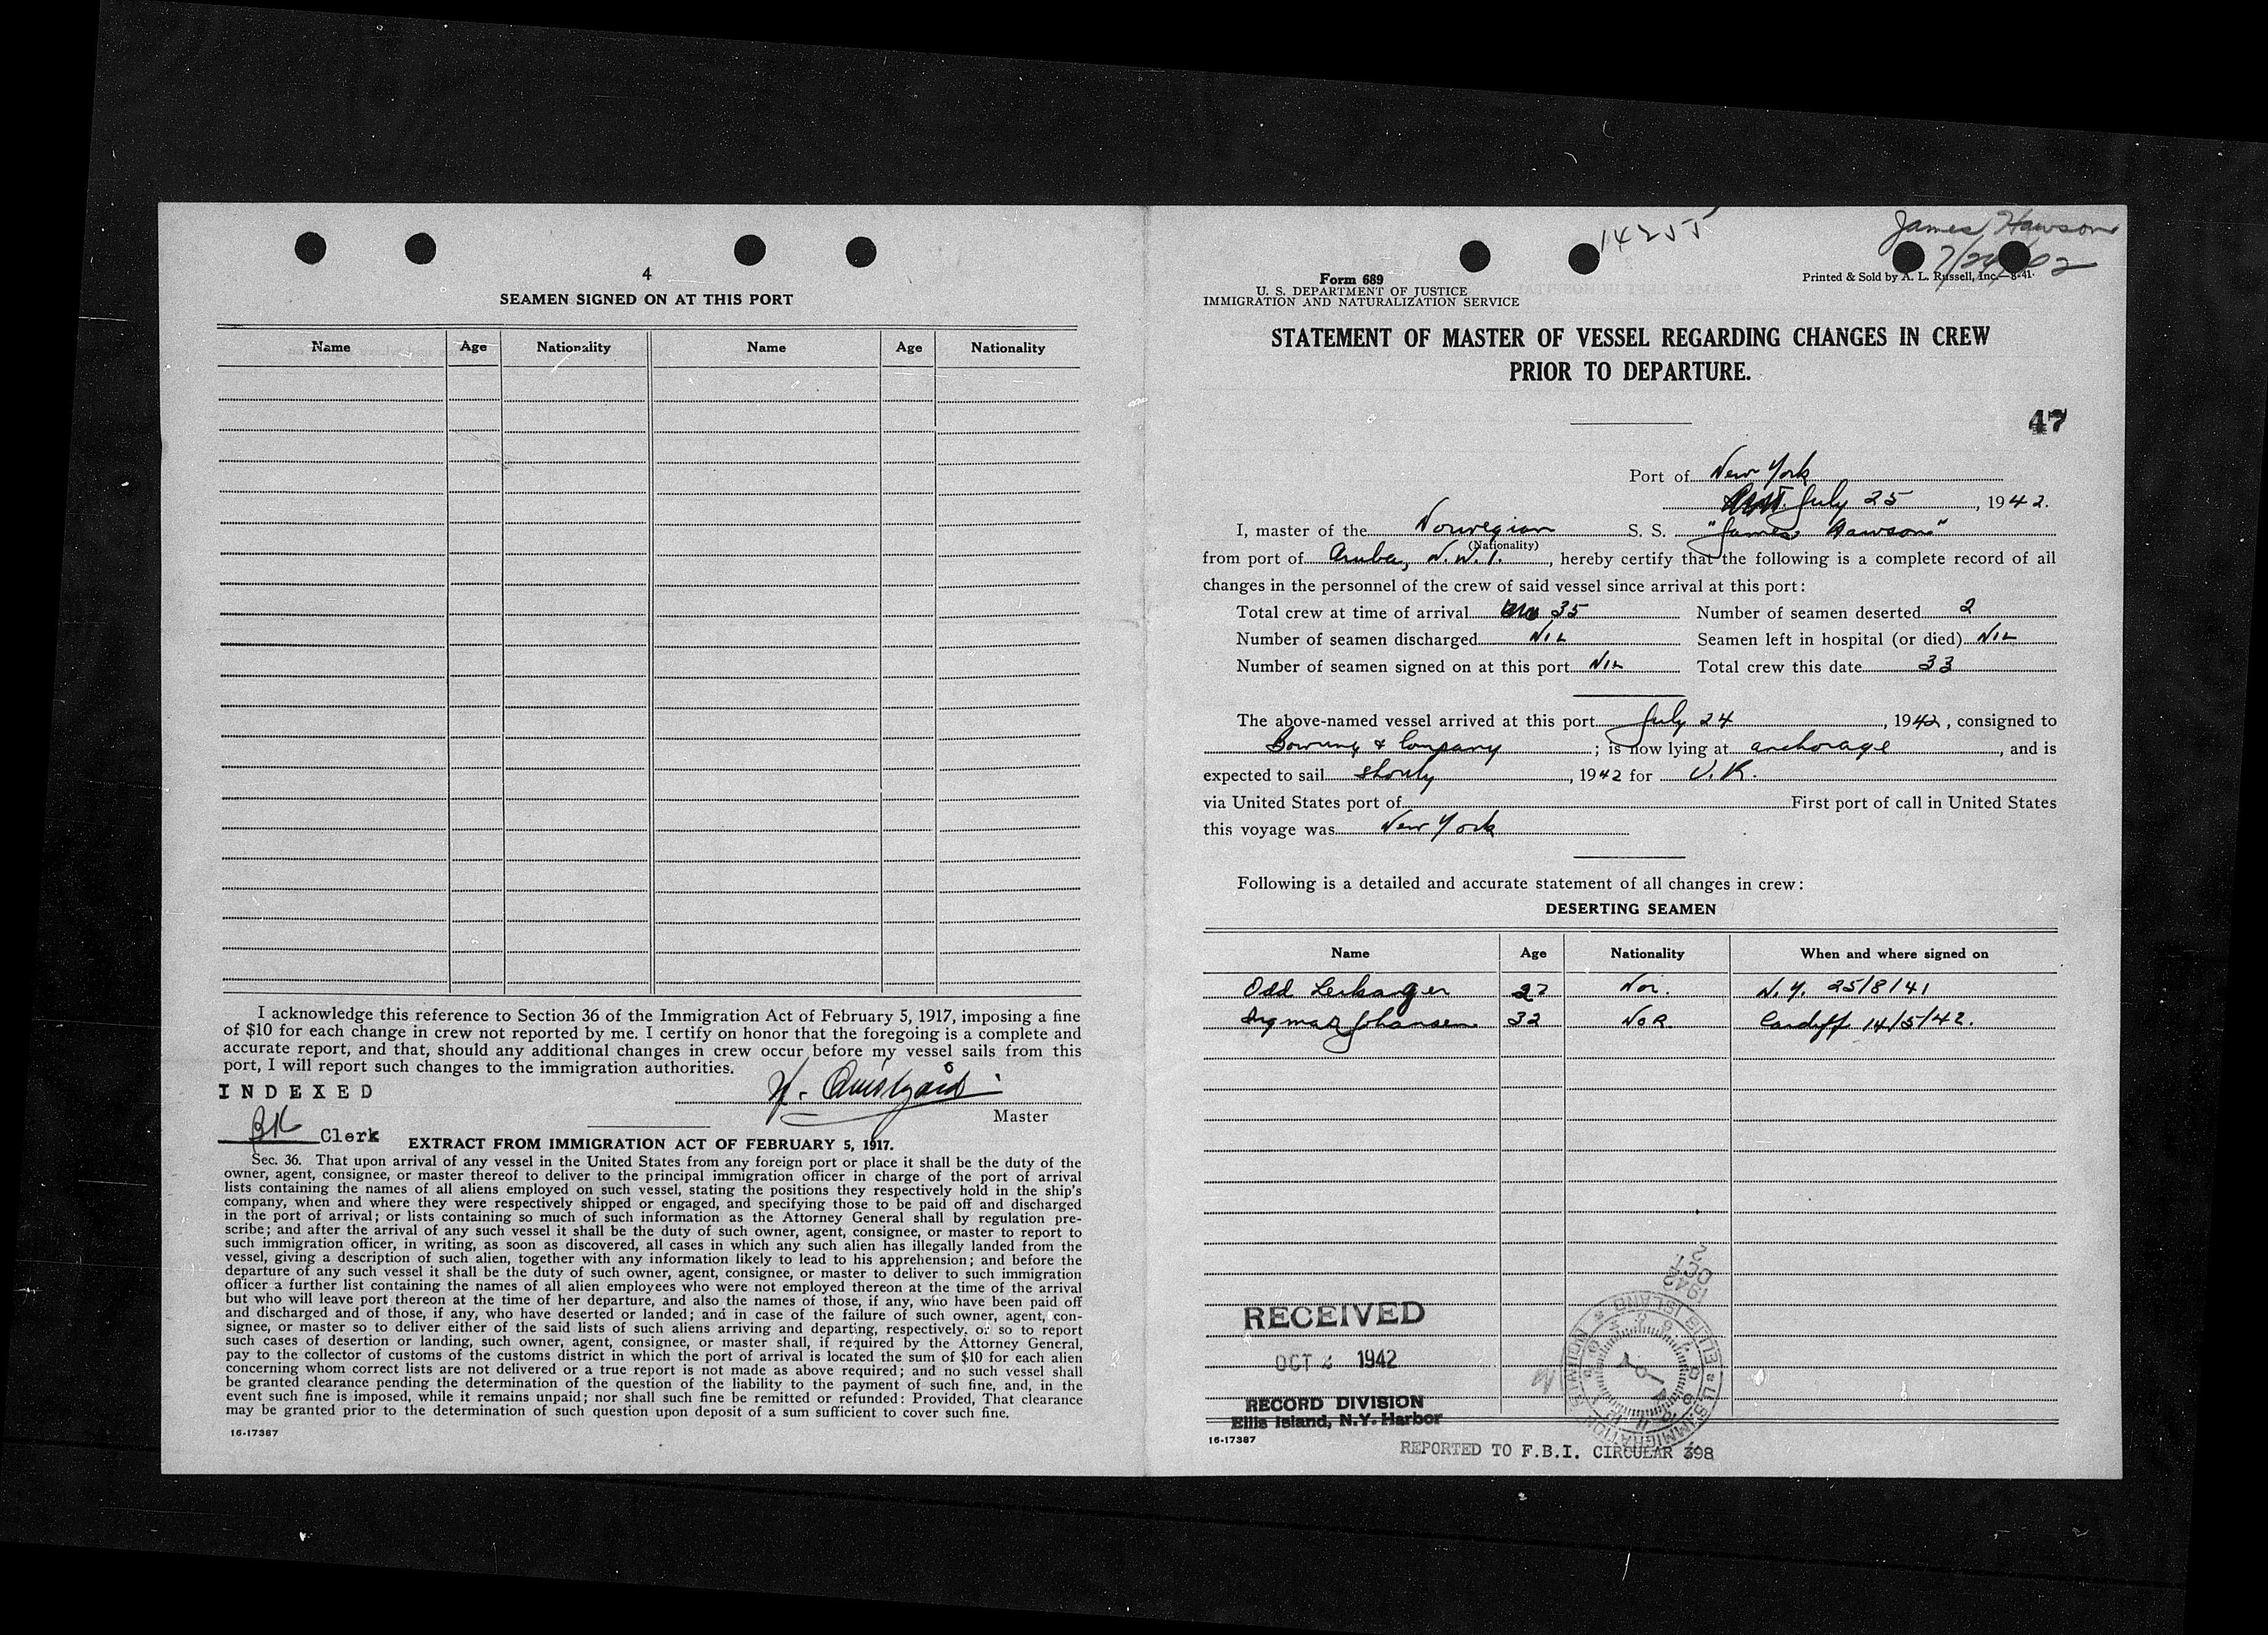 4
SEAMEN SIGNED ON AT THIS PORT
Name Age Nationality Name Age Nationality
I acknowledge this reference to Section 36 of the Immigration Act of February 5, 1917, imposing a fine
of $10 for each change in crew not reported by me. I certify on honor that the foregoing is a complete and
accurate report, and that, should any additional changes in crew occur before my vessel sails from this
port, I will report such changes to the immigration authorities.
INDEXED
Master
BK Clerk
EXTRACT FROM IMMIGRATION ACT OF FEBRUARY 5, 1917.
Sec. 36. That upon arrival of any vessel in the United States from any foreign port or place it shall be the duty of the
owner, agent, consignee, or master thereof to deliver to the principal immigration officer in charge of the port of arrival
lists containing the names of all aliens employed on such vessel, stating the positions they respectively hold in the ship's
company, when and where they were respectively shipped or engaged, and specifying those to be paid off and discharged
in the port of arrival; or lists containing so much of such information as the Attorney General shall by regulation pre-
scribe; and after the arrival of any such vessel it shall be the duty of such owner, agent, consignee, or master to report to
such immigration officer, in writing, as soon as discovered, all cases in which any such alien has illegally landed from the
vessel, giving a description of such alien, together with any information likely to lead to his apprehension; and before the
departure of any such vessel it shall be the duty of such owner, agent, consignee, or master to deliver to such immigration
officer a further list containing the names of all alien employees who were not employed thereon at the time of the arrival
but who will leave port thereon at the time of her departure, and also the names of those, if any, who have been paid off
and discharged and of those, if any, who have deserted or landed; and in case of the failure of such owner, agent, con-
signee, or master so to deliver either of the said lists of such aliens arriving and departing, respectively, or so to report
such cases of desertion or landing, such owner, agent, consignee, or master shall, if required by the Attorney General,
pay to the collector of customs of the customs district in which the port of arrival is located the sum of $10 for each alien
concerning whom correct lists are not delivered or a true report is not made as above required; and no such vessel shall
be granted clearance pending the determination of the question of the liability to the payment of such fine, and, in the
event such fine is imposed, while it remains unpaid; nor shall such fine be remitted or refunded: Provided, That clearance
may be granted prior to the determination of such question upon deposit of a sum sufficient to cover such fine.
16-17387
14255
James Hawson
Form 689
U. S. DEPARTMENT OF JUSTICE
IMMIGRATION AND NATURALIZATION SERVICE
Printed & Sold by A. L. Russell, Inc.—8-41
STATEMENT OF MASTER OF VESSEL REGARDING CHANGES IN CREW
PRIOR TO DEPARTURE.
47
Port of New York
July 25, 1942.
I, master of the Norwegian S. S. "James Hawson"
(Nationality)
from port of Aruba, N.W.I., hereby certify that the following is a complete record of all
changes in the personnel of the crew of said vessel since arrival at this port:
Total crew at time of arrival 35 Number of seamen deserted 2
Number of seamen discharged NIL Seamen left in hospital (or died) NIL
Number of seamen signed on at this port NIL Total crew this date 33
The above-named vessel arrived at this port July 24, 1942, consigned to
Bowring & Company; is now lying at anchorage, and is
expected to sail shortly, 1942 for U.K.
via United States port of First port of call in United States
this voyage was New York
Following is a detailed and accurate statement of all changes in crew:
DESERTING SEAMEN
Name Age Nationality When and where signed on
Odd 27 Nor. N.Y. 25/8/41
Ingmar Johansen 32 NOR. Cardiff 14/5/42.
RECEIVED
OCT 2 1942
RECORD DIVISION
Ellis Island, N.Y. Harbor
1942
OCT
2
16-17387
REPORTED TO F.B.I. CIRCULAR 398